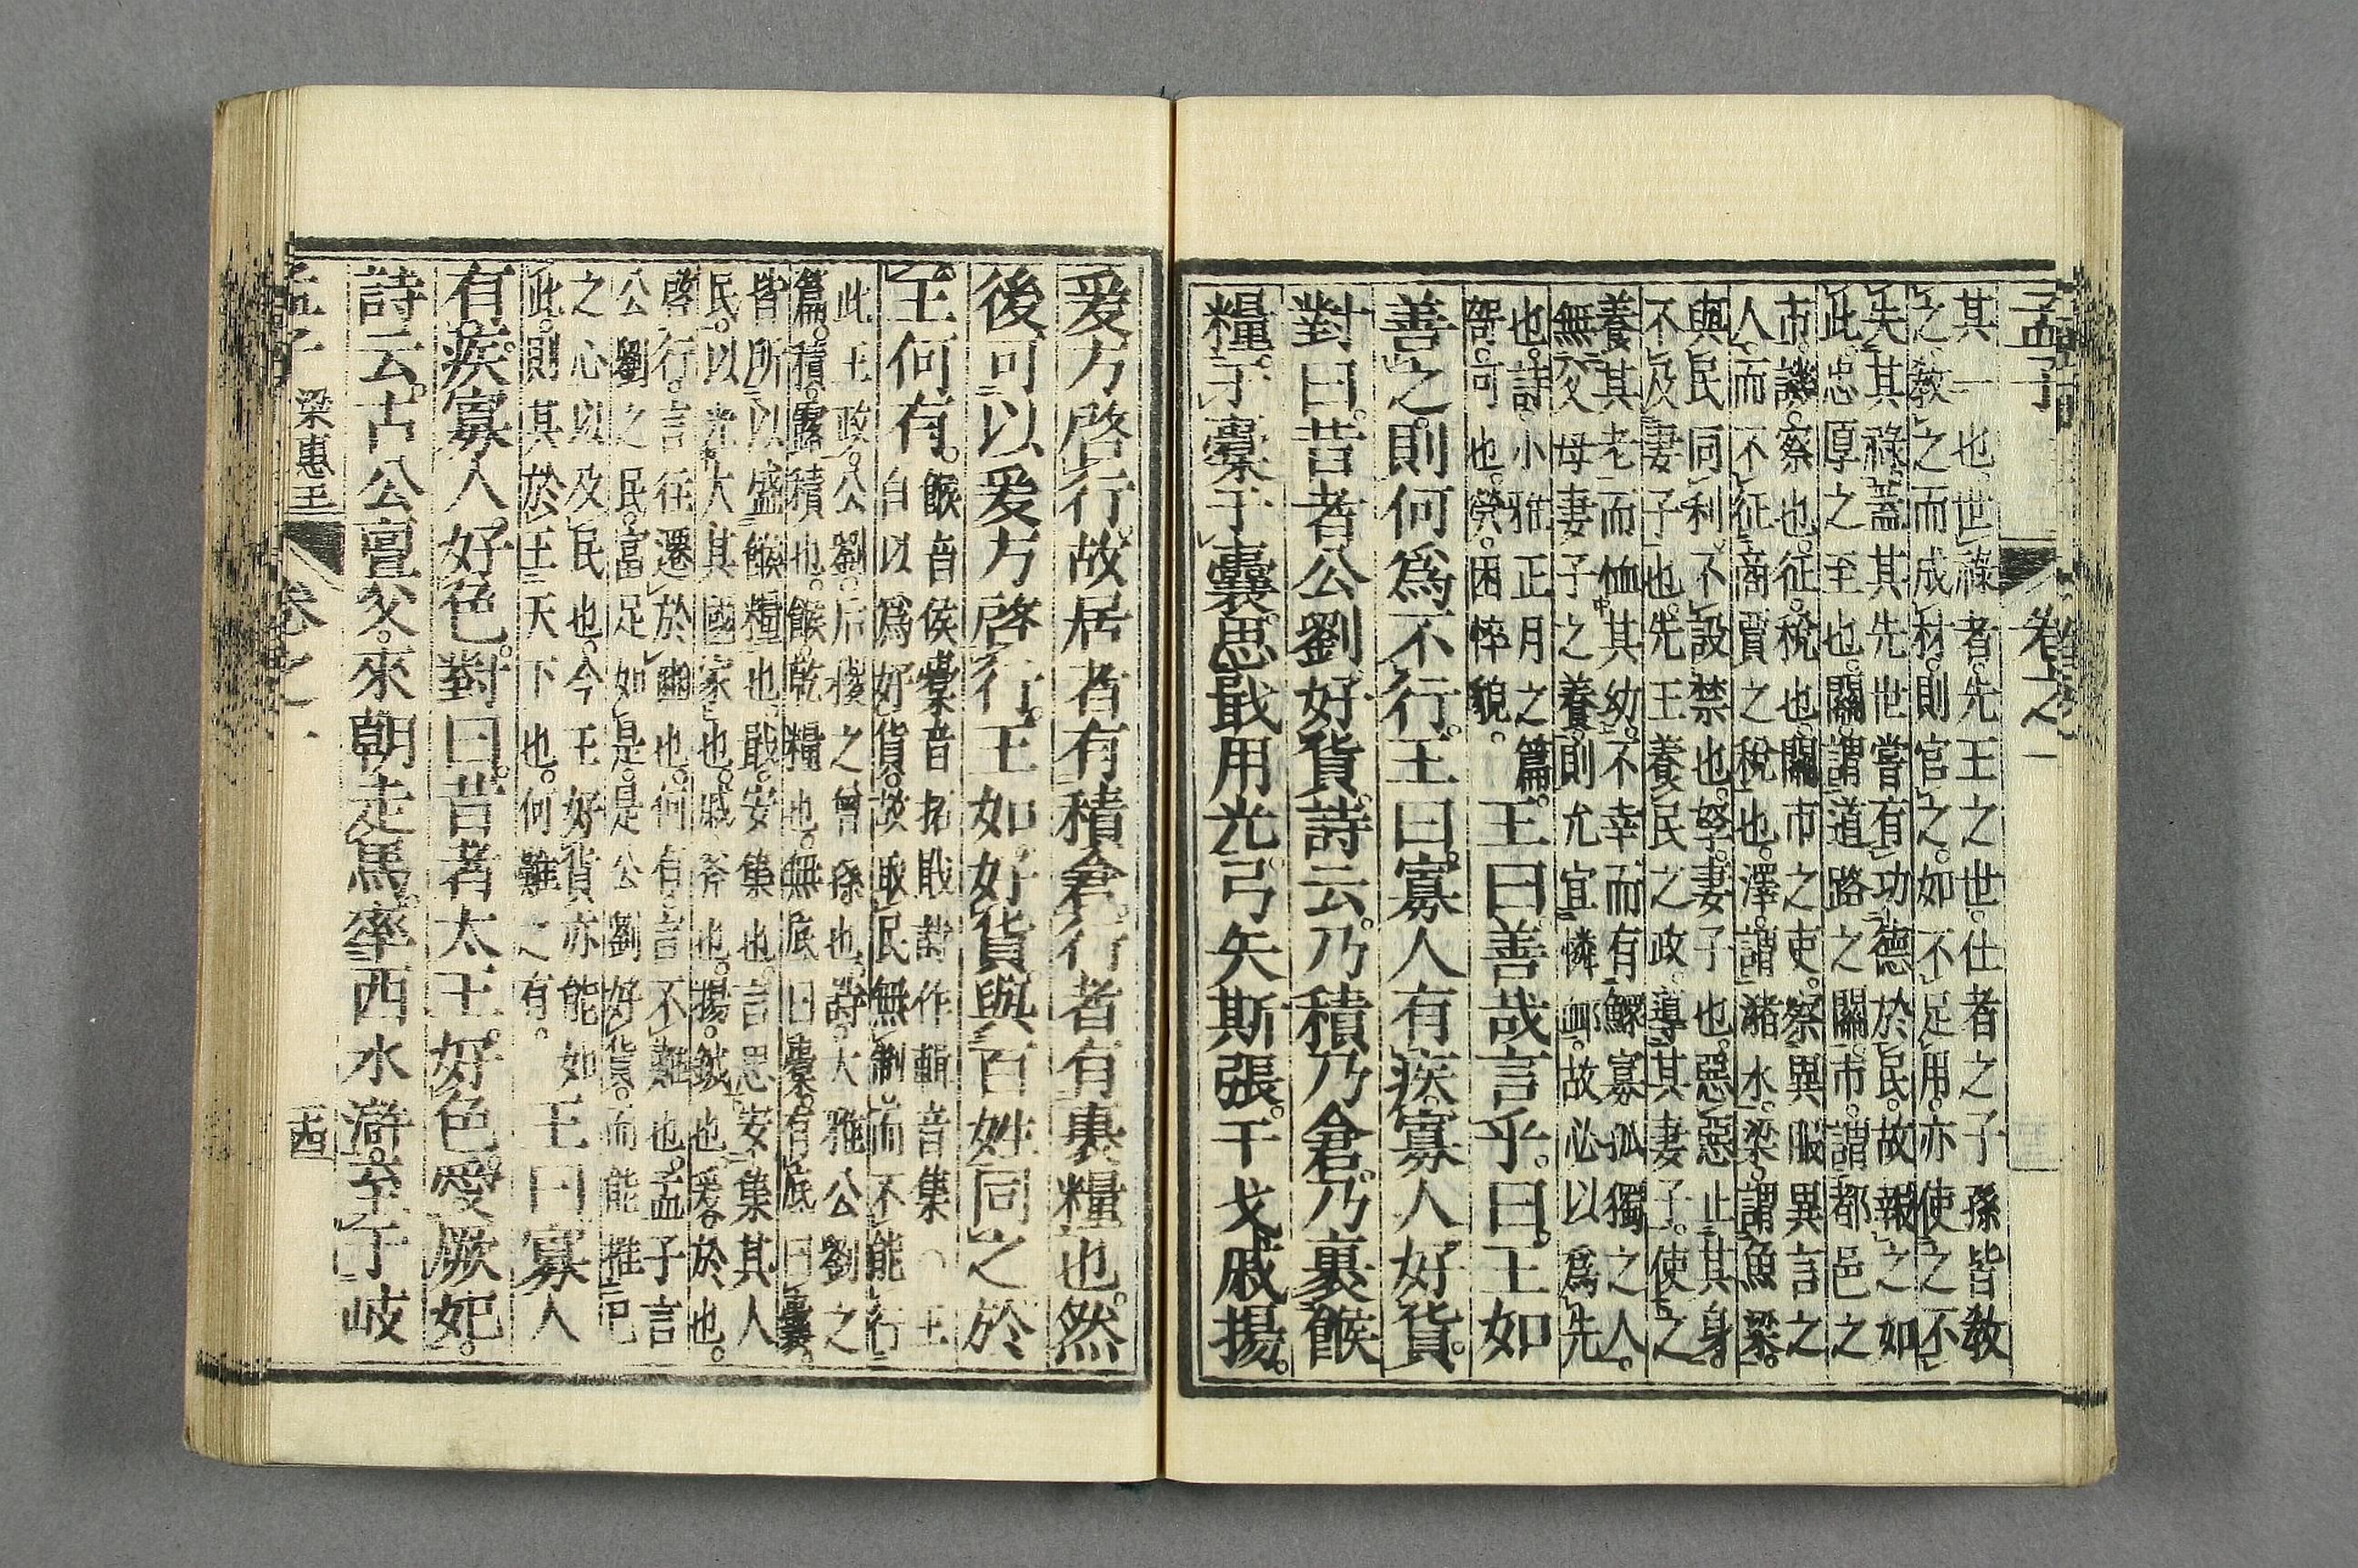 孟子 卷之一
其一也。世祿者先王之世。仕者之子孫皆教
之教之而成材則官之。如不足用亦使之不
失其祿蓋其先世嘗有功德於民。故報之如
此忠厚之至也。關謂道路之關。市謂都邑之
市。譏察也。征。稅也。關市之吏。察異服異言之
人而不征商賈之稅也。澤謂瀦水。梁謂魚梁。
與民同利。不設禁也。孥妻子也。惡惡止其身。
不及妻子也。先王養民之政。導其妻子。使之
養其老而恤其幼。不幸而有鰥寡孤獨之人。
無父母妻子之養則尤宜憐卹。故必以爲先
也。詩小雅正月之篇。
哿。可也。煢。困悴貌。
王曰善哉言乎。曰。王如
善之。則何爲不行。王曰。寡人有疾。寡人好貨。
對曰。昔者公劉好貨。詩云。乃積乃倉。乃裹餱
糧。于橐于囊。思戢用光。弓矢斯張。干戈戚揚。
爰方啓行。故居者有積倉。行者有裹糧也。然
後可以爰方啓行。王如好貨。與百姓同之於
王何有。
餱音侯橐音拓戢詩作輯音集○王
自以爲好貨。故取民無制而不能行
此王政。公劉。后稷之曾孫也。詩。大雅公劉之
篇。積。露積也。餱。乾糧也。無底曰橐。有底曰囊。
皆所以盛餱糧也。戢。安集也。言思安集其人
民。以光大其國家也。戚。斧也。揚。鉞也。爰。於也。
啓行。言往遷於豳也。何有言不難也。孟子言
公劉之民。富足如是。是公劉好貨。而能推己
之心以及民也。今王好貨亦能如
此。則其於王天下也。何難之有。
王曰寡人
有疾。寡人好色。對曰。昔者太王。好色。愛厥妃。
詩云。古公亶父。來朝走馬。率西水滸。至于岐
孟子 梁惠王 卷之一 十四